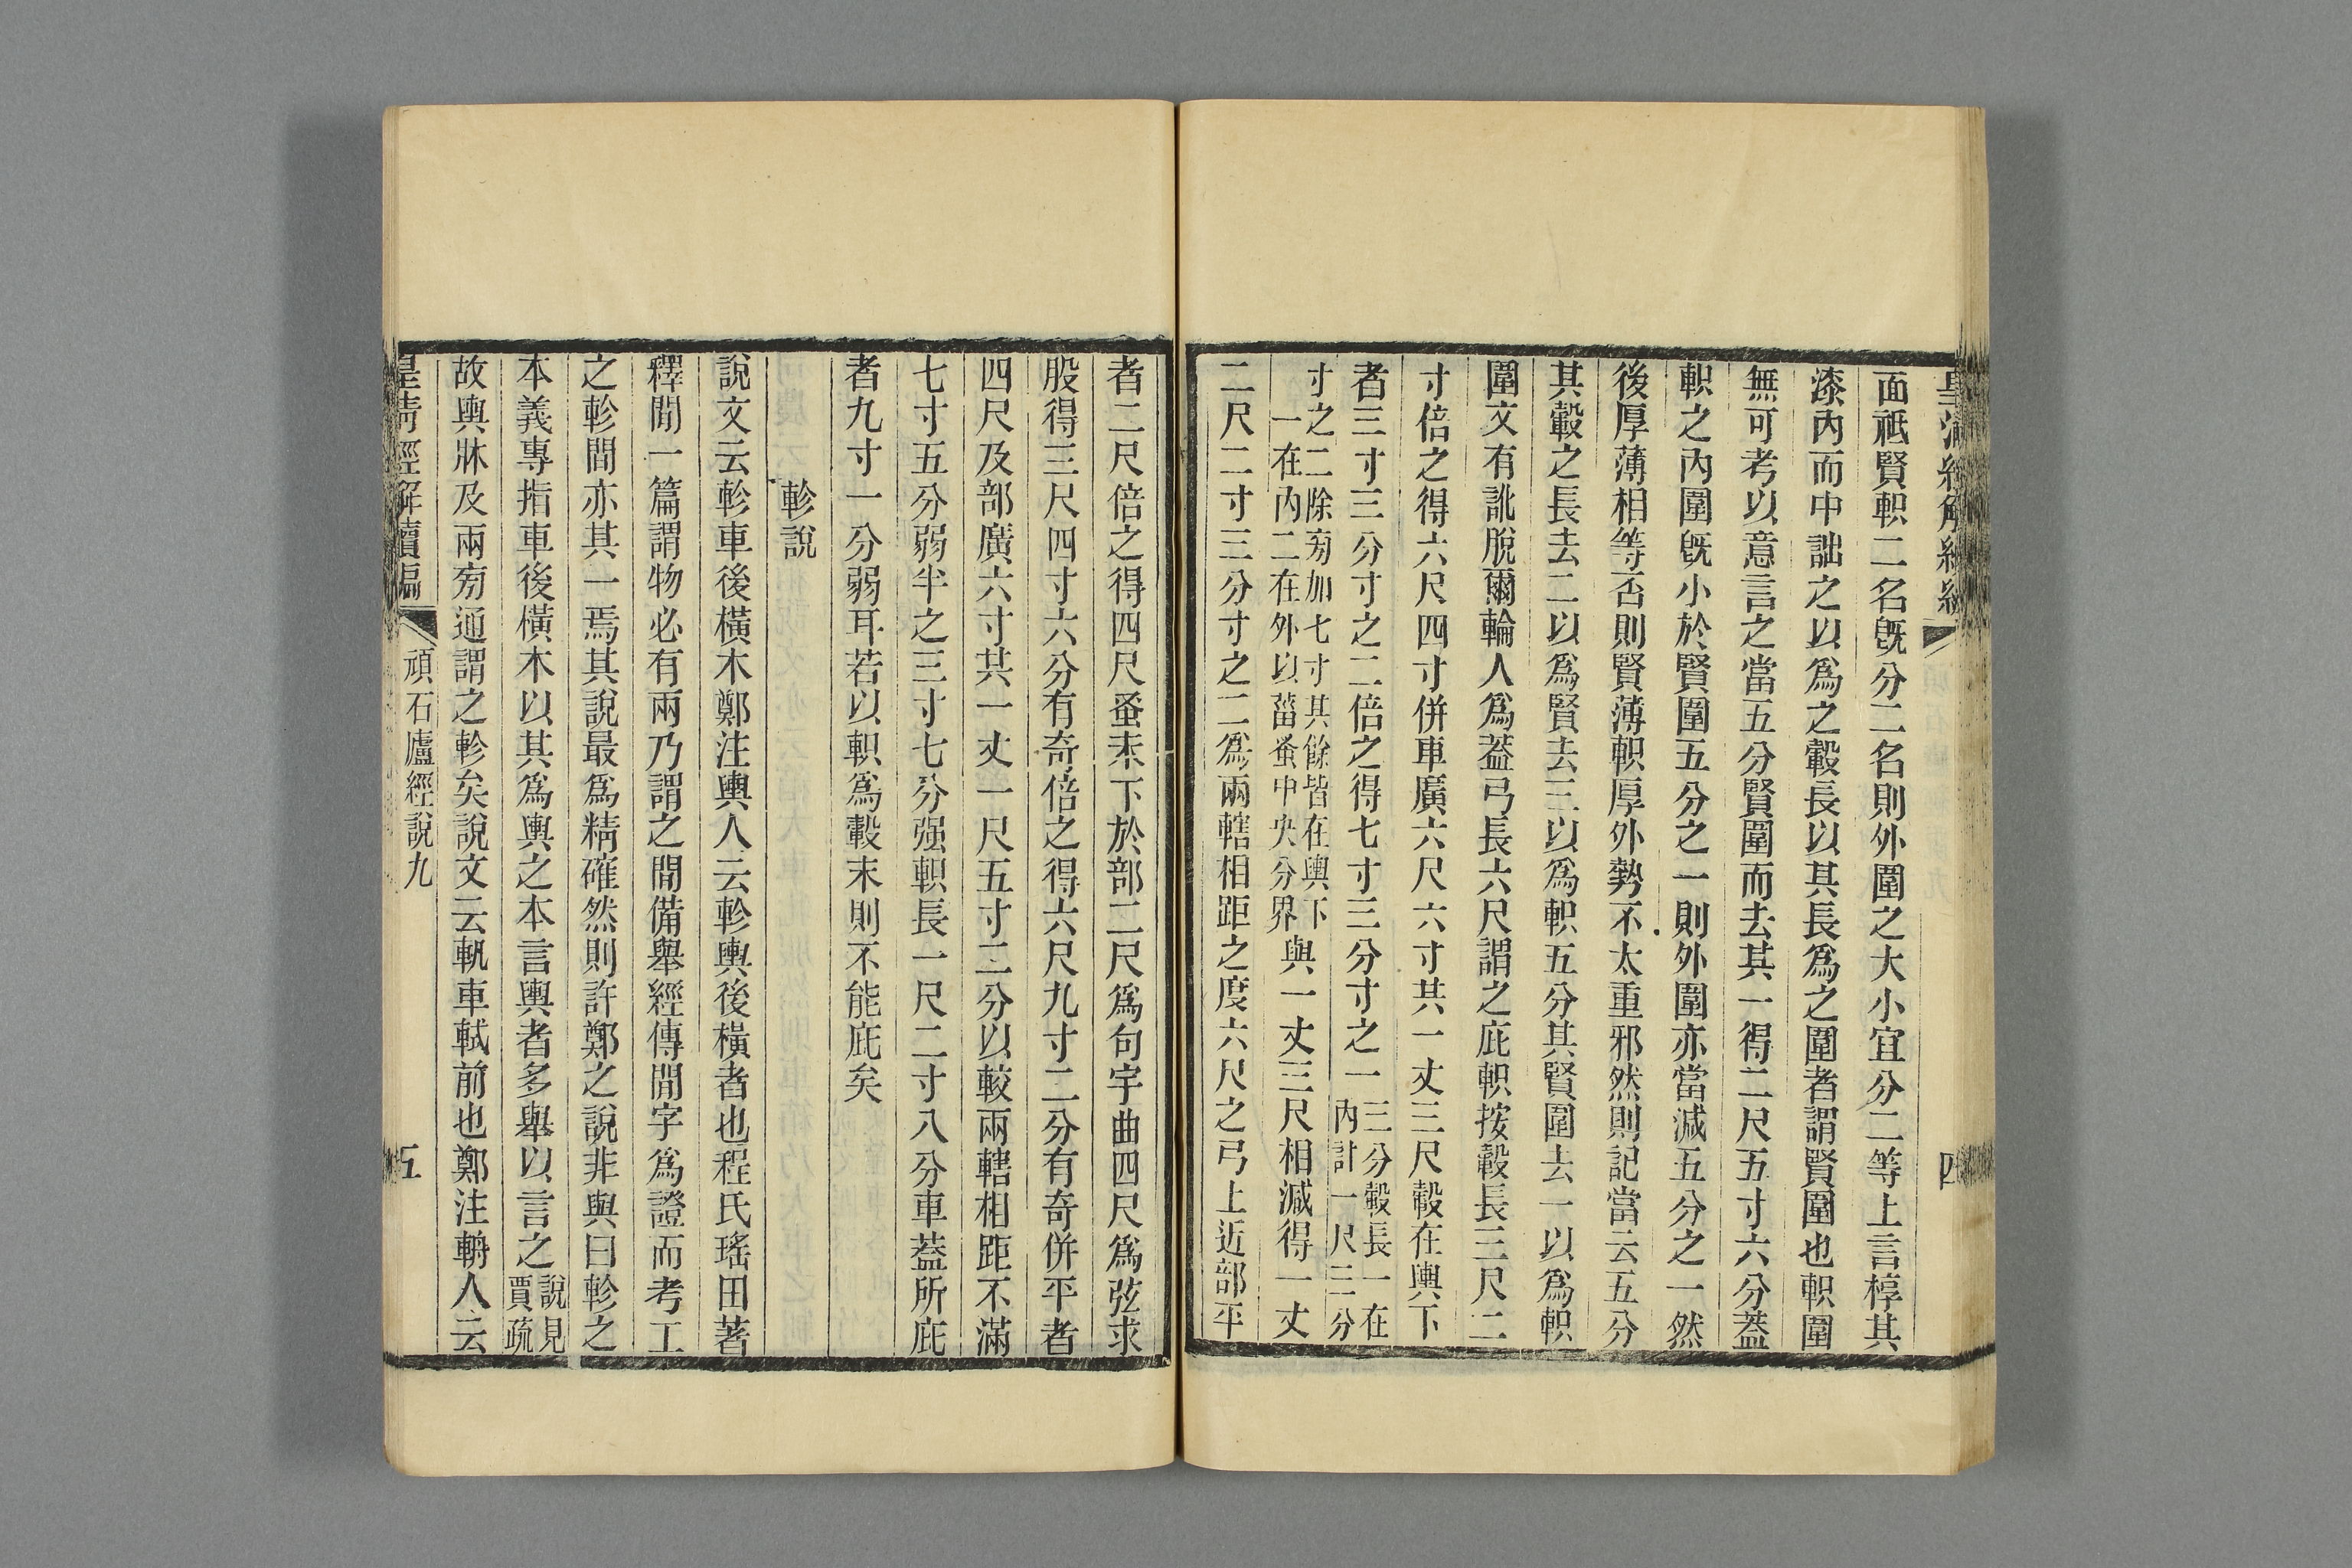 面祗賢軹二名旣分二名則外圍之大小宜分二等上言椁其
漆內而中詘之以爲之轂長以其長爲之圍者謂賢圍也軹圍
無可考以意言之當五分賢圍而去其一得二尺五寸六分蓋
軹之內圍旣小於賢圍五分之一則外圍亦當減五分之一然
後厚薄相等否則賢薄軹厚外勢不太重邪然則記當云五分
其轂之長去二以爲賢去三以爲軹五分其賢圍去一以爲軹
圍文有訛脫爾輪人爲蓋弓長六尺謂之庇軹按轂長三尺二
寸倍之得六尺四寸併車廣六尺六寸共一丈三尺轂在輿下
者三寸三分寸之二倍之得七寸三分寸之一三分轂長一在內計一尺三分
寸之二除旁加七寸其餘皆在輿下一在內二在外以菑蚤中央分界與一丈三尺相減得一丈
二尺二寸三分寸之二爲兩轄相距之度六尺之弓上近部平
四
者二尺倍之得四尺蚤耒下於部二尺爲句宇曲四尺爲弦求
股得三尺四寸六分有奇倍之得六尺九寸二分有奇併平者
四尺及部廣六寸共一丈一尺五寸二分以較兩轄相距不滿
七寸五分弱半之三寸七分强軹長一尺二寸八分車蓋所庇
者九寸一分弱耳若以軹爲轂末則不能庇矣
軫說
說文云軫車後橫木鄭注輿人云軫輿後橫者也程氏瑤田著
釋閒一篇謂物必有兩乃謂之閒備舉經傳閒字爲證而考工
之軫閒亦其一焉其說最爲精確然則許鄭之說非與曰軫之
本義專指車後橫木以其爲輿之本言輿者多舉以言之說見賈疏
故輿牀及兩旁通謂之軫矣說文云軓車軾前也鄭注輈人云
皇清經解續編
頑石廬經說九
五